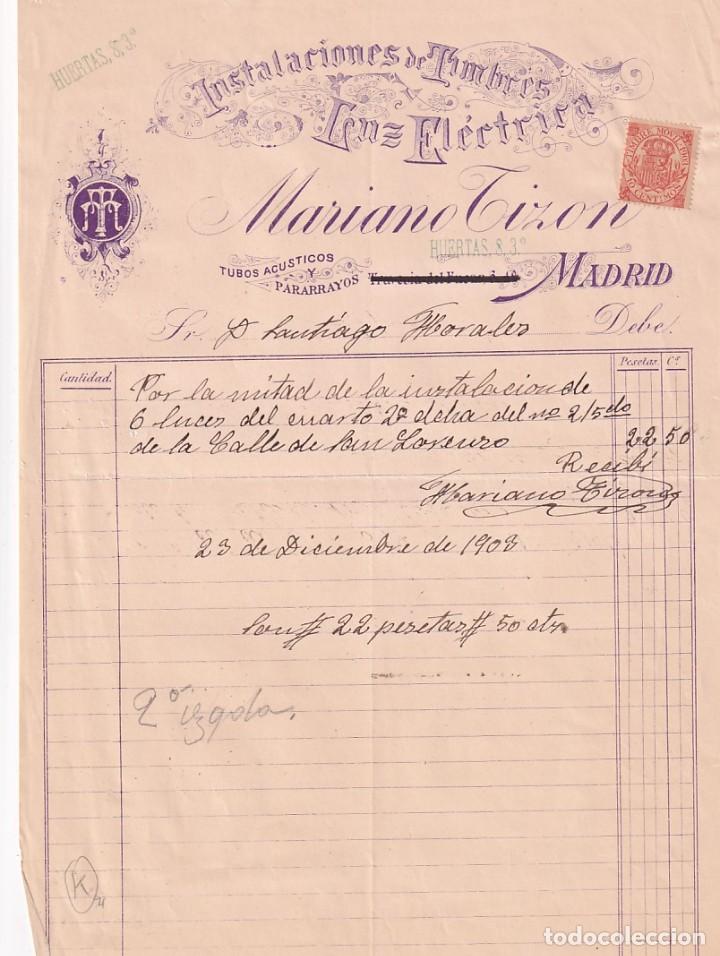 HUERTAS, 8, 3º
Instalaciones de Timbres
Luz Eléctrica
TIMBRE MÓVIL
10 CENTIMOS
MT
Mariano Tizon
HUERTAS, 8, 3º
TUBOS ACUSTICOS
Y
PARARRAYOS
MADRID
Sr. D Santiago Morales Debe
Cantidad. Pesetas. Cs
Por la mitad de la instalacion de
6 luces del cuarto 2º dcha del nº 2
de la Calle de San Lorenzo 22 50
Recibi
Mariano Tizon
23 de Diciembre de 1903
Son # 22 pesetas # 50 cts.
2º izqda.
K
todocoleccion.net